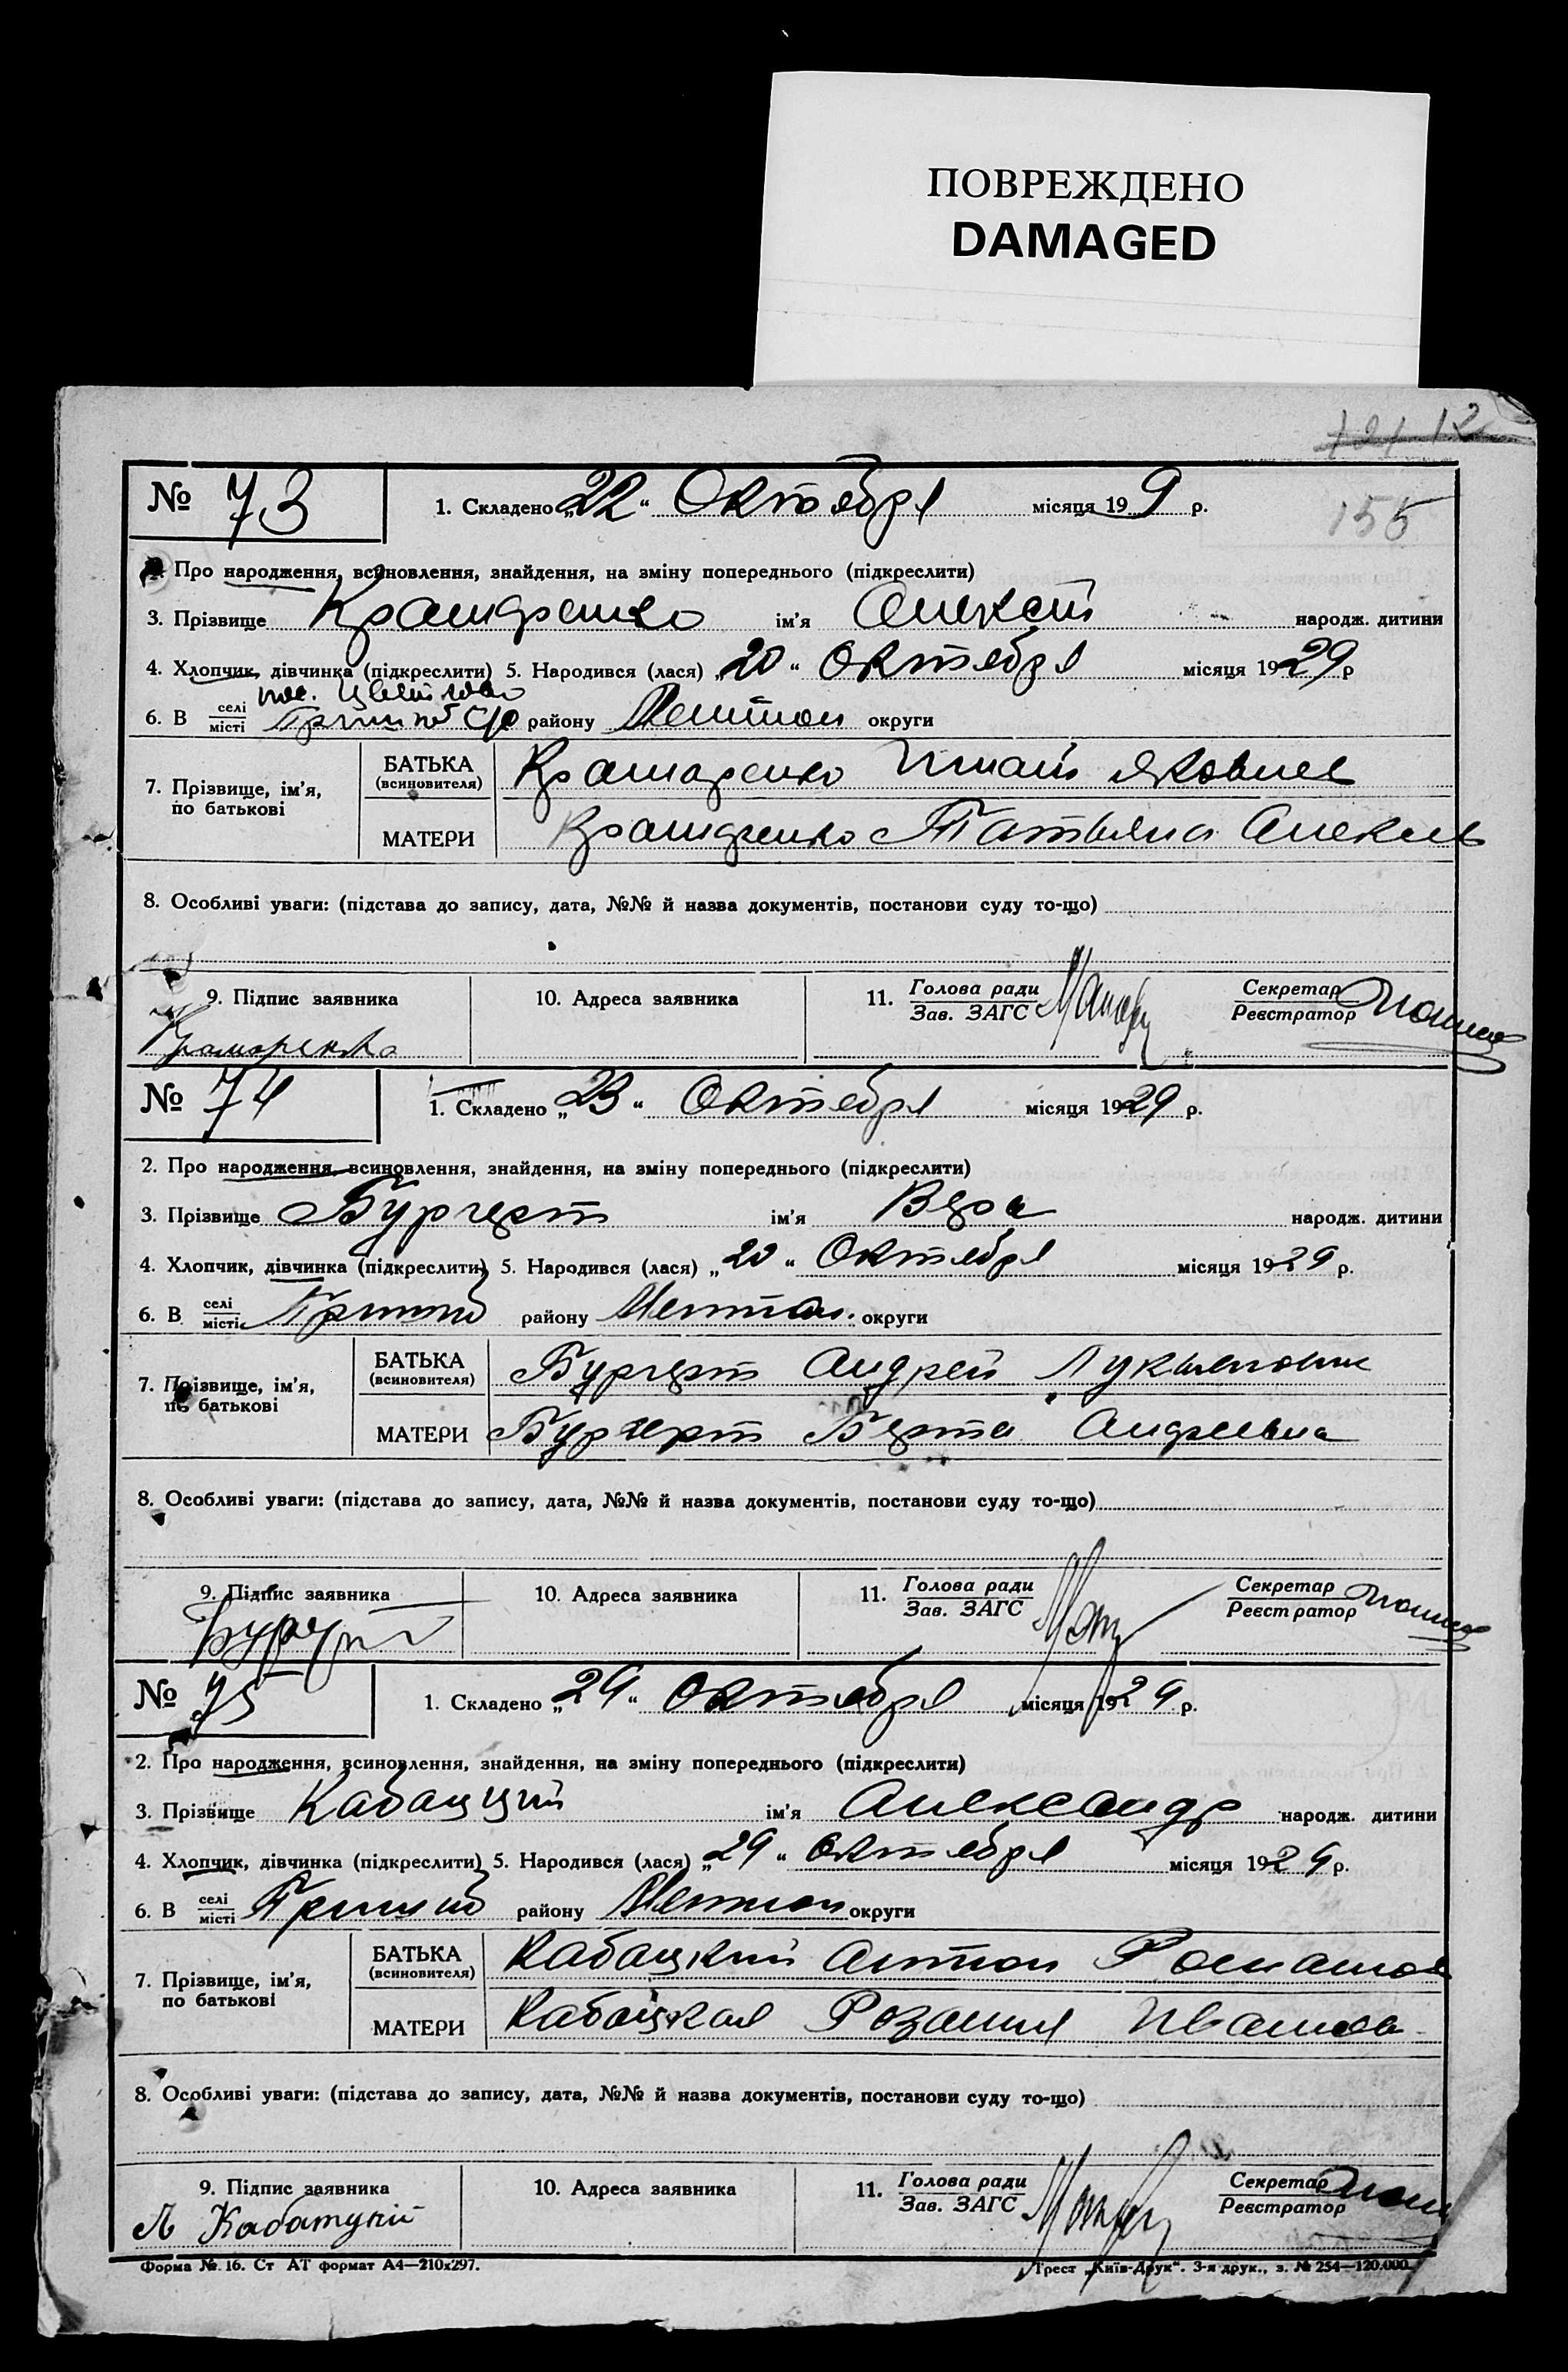 ПОВРЕЖДЕНО
DAMAGED
155
№ 73 1. Складено „22“ Октября місяця 19 9 р.
2. Про народження, всиновлення, знайдення, на зміну попереднього (підкреслити)
3. Прізвище ім'я Алексей народж. дитини
4. Хлопчик, дівчинка (підкреслити) 5. Народився (лася) „20“ Октября місяця 1929 р
6. В селі місті району округи
7. Прізвище, ім'я, по батькові
БАТЬКА (всиновителя) Игнат Яковлев
МАТЕРИ Татьяна Алексев
8. Особливі уваги: (підстава до запису, дата, №№ й назва документів, постанови суду то-що)
9. Підпис заявника 10. Адреса заявника 11. Голова ради Зав. ЗАГС Секретар Реєстратор
№ 74 1. Складено „23“ Октября місяця 1929 р.
2. Про народження, всиновлення, знайдення, на зміну попереднього (підкреслити)
3. Прізвище Бургерт ім'я Вера народж. дитини
4. Хлопчик, дівчинка (підкреслити) 5. Народився (лася) „20“ Октября місяця 1929 р.
6. В селі місті району округи
7. Прізвище, ім'я, по батькові
БАТЬКА (всиновителя) Бургерт Андрей Лукьянович
МАТЕРИ Бургерт Берта Андреевна
8. Особливі уваги: (підстава до запису, дата, №№ й назва документів, постанови суду то-що)
9. Підпис заявника 10. Адреса заявника 11. Голова ради Зав. ЗАГС Секретар Реєстратор
№ 75 1. Складено „29“ Октября місяця 1929 р.
2. Про народження, всиновлення, знайдення, на зміну попереднього (підкреслити)
3. Прізвище ім'я Александр народж. дитини
4. Хлопчик, дівчинка (підкреслити) 5. Народився (лася) „29“ Октября місяця 1929 р.
6. В селі місті району округи
7. Прізвище, ім'я, по батькові
БАТЬКА (всиновителя) Кабацкий Антон Романов
МАТЕРИ Кабацкая Розалия Иванов
8. Особливі уваги: (підстава до запису, дата, №№ й назва документів, постанови суду то-що)
9. Підпис заявника 10. Адреса заявника 11. Голова ради Зав. ЗАГС Секретар Реєстратор
Форма № 16. Ст АТ формат А4—210х297. Трест „Київ-Друк“. 3-я друк., з. № 254—120.000.